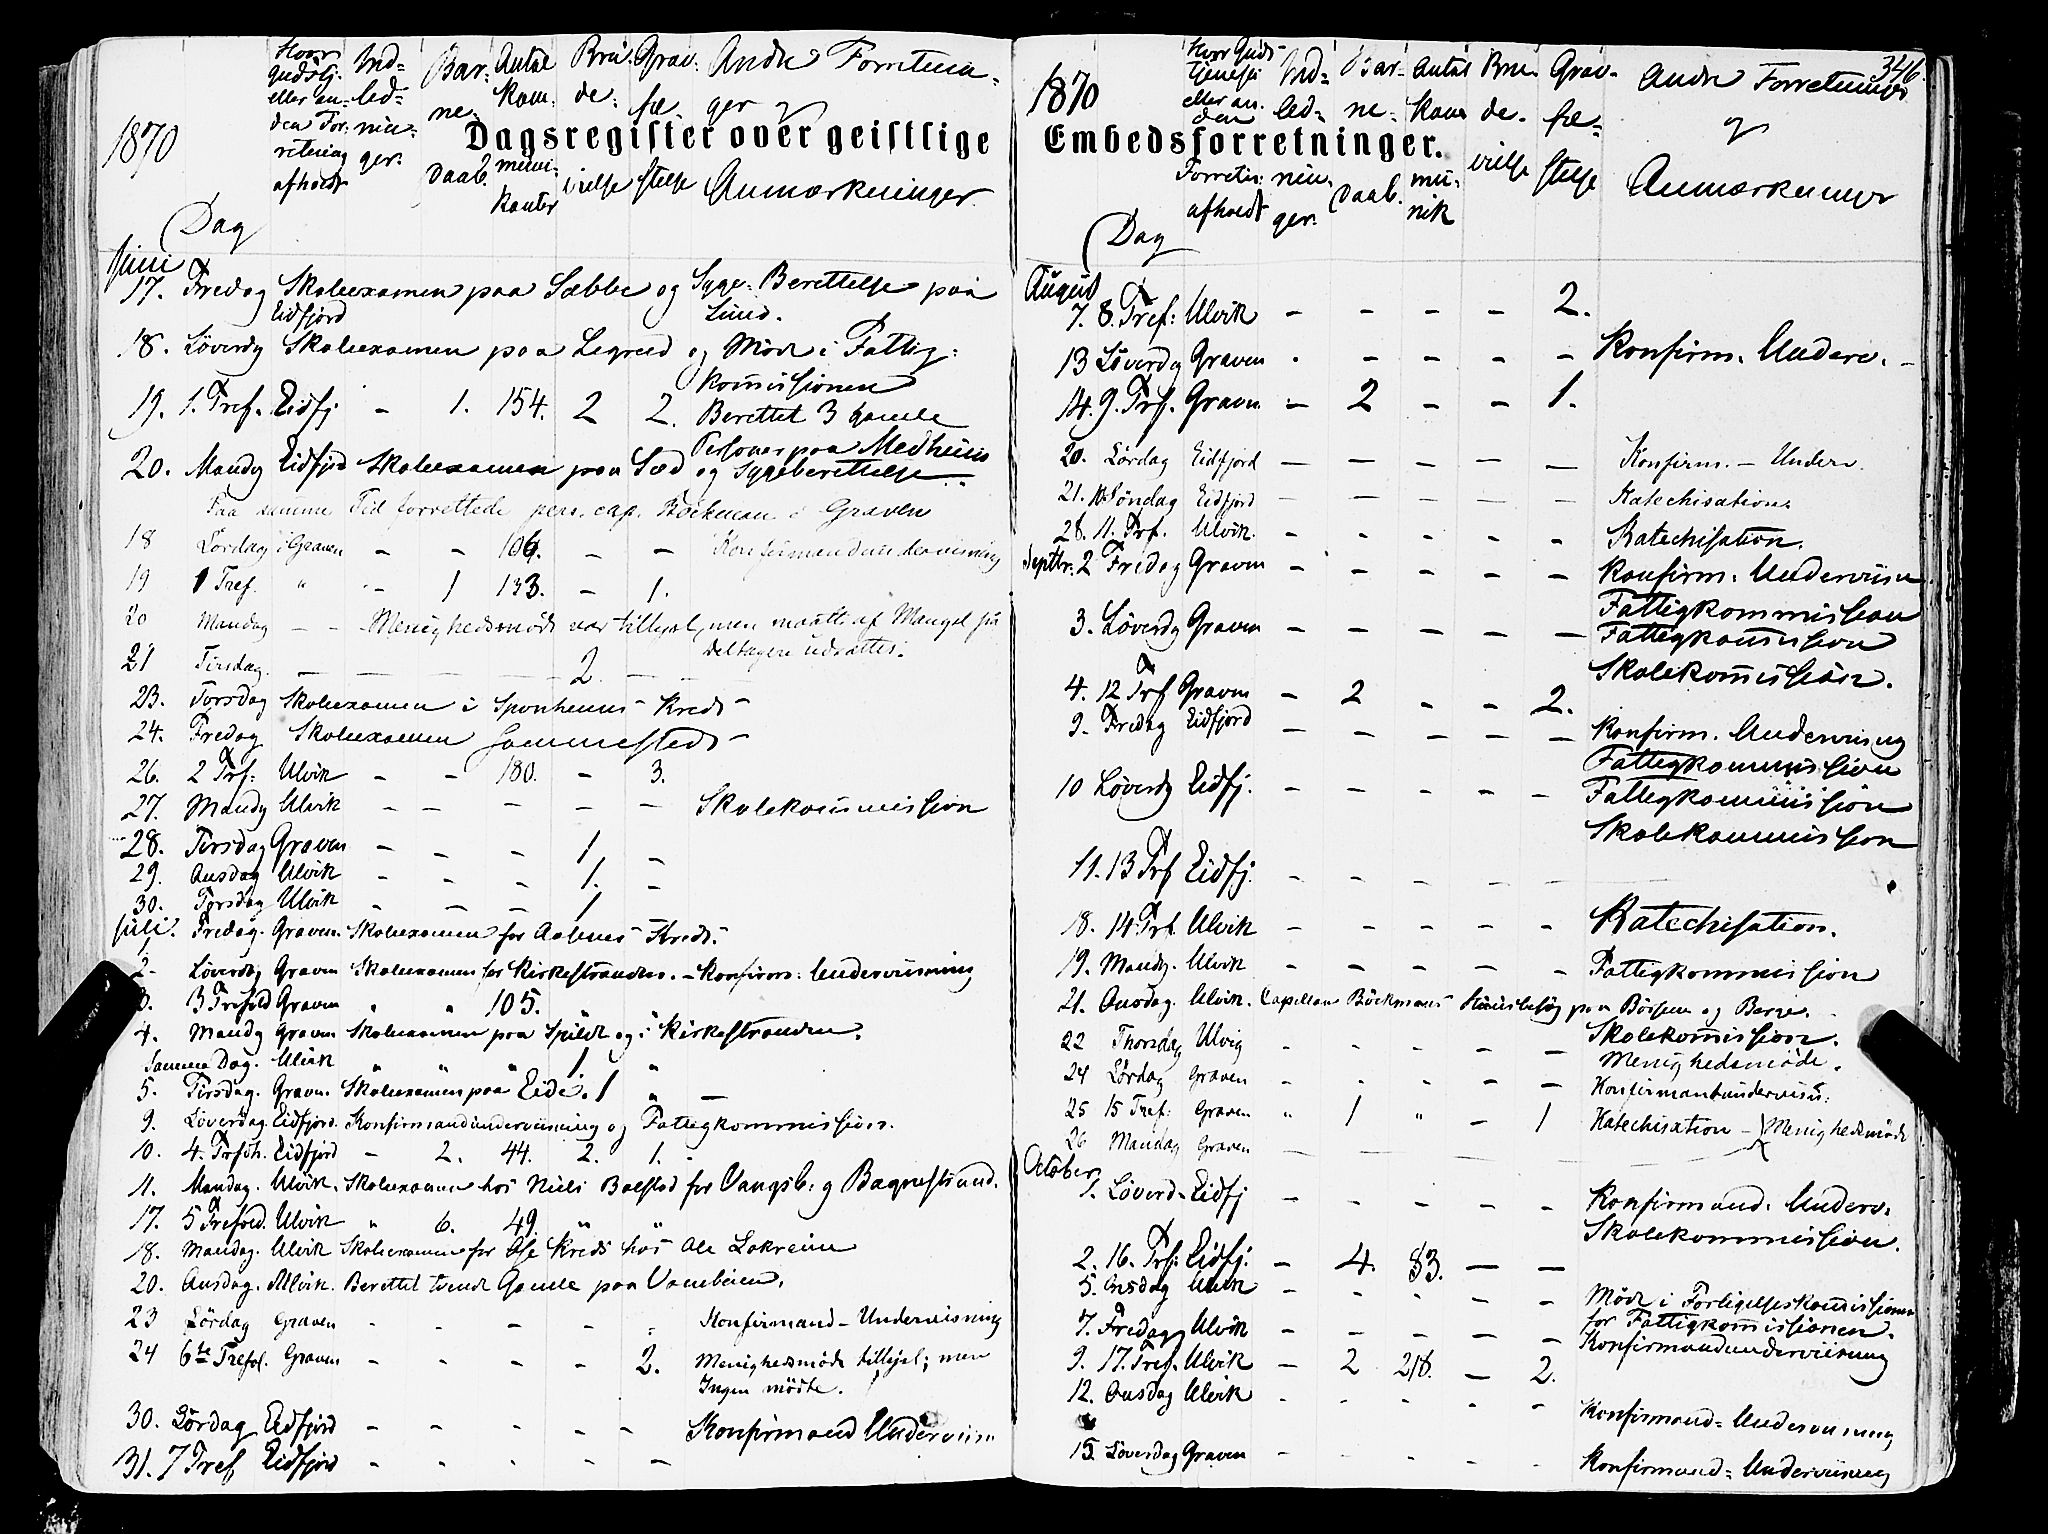 1870
Dagsregister over geistlige
Hvor Gudstj. eller anden Forretning afholdt
Indledninger.
Barnedaab.
Antal Kommunikanter
Brudevielse
Gravfæstelse
Andre Forretninger og Anmærkninger
Dag
Juni
17. Fredag Skoleexamen paa Sæbbe og Syge-Berettelse paa
Eidfjord Lund.
18. Løverdg Skoleexamen paa Legreid og Møde i Fattig-
kommissionen
19. 1. Tref. Eidfj. - 1. 154. 2 2. Berettet 3 gamle
Personer paa Medheim
20. Mandg Eidfjord Skoleexamen paa Sæd og Sygeberettelse.
Paa samme Tid forrettede pers. cap. Böckman i Graven
18 Lørdag i Graven - - 106. - - Konfirmandundervisning
19 1 Tref. " - 1 133. - 1.
20 Mandag - - Menighedsmöde var tillyst, men maatte af Mangel på
Deltagere udsættes.
21 Tirsdag. - - - 2 - -
23. Torsdag Skoleexamen i Sponheims Kreds -
24. Fredag Skoleexamen sammesteds -
26. 2 Trf: Ulvik - - 180. - 3.
27. Mandg Ulvik - - - - - Skolekommission
28. Tirsdag Graven - - - 1 -
29. Onsdag Ulvik - - - 1. -
30. Torsdag Ulvik - - - 1
Juli.
1. Fredag. Graven. Skoleexamen for Aalvies Kreds.
2. Løverdg Graven Skoleexamen for Kirkestranden. - Konfirm: Underviisning
3. 3 Trefold Graven " " 105.
4. Mandg Graven Skoleexamen paa Spildt og i Kirkestranden.
Samme Dag. Ulvik " " " 1. "
5. Tirsdag. Graven Skoleexamen paa Eide. 1 " -
9. Löverdag. Eidfjord. Konfirmandunderviisning og Fattigkommission.
10. 4. Trfth. Eidfjord - 2. 44. 2. 1. -
11. Mandag. Ulvik. Skoleexamen hos Niels Bolstad for Vangsb. og Bagnestrand.
17. 5 Trefold. Ulvik " 6. 49. " "
18. Mandag. Ulvik Skoleexamen for Ose Kreds hos Ole Lekreim
20. Onsdag. Ulvik. Berettet tvende Gamle paa Vambeien.
23 Lördag Graven - - - - - Konfirmand-Undervisning
24 6te Trefol. Graven - - - - 2. Menighedsmöde tillyst; men
Ingen mödte.
30. Lördag Eidfjord - - - - - Konfirmand Underviisn
31. 7 Tref Eidfjord - - - - -
346.
1870
Embedsforretninger.
Hvor Gudstjeneste eller anden Forretn: afholdt
Indledninger.
Barnedaab.
Antal Kommunik
Brudevielse
Gravfæstelse
Andre Forretninger og Anmærkninger
Dag
August
7. 8. Tref: Ulvik - - - - 2.
13 Löverdg Graven - - - - - Konfirm. Underv. -
14. 9. Trf. Graven - 2 - - 1.
20. Lørdag Eidfjord - - - - - Konfirm. - Underv.
21. 10. Söndag Eidfjord - - - - - Katechisation.
28. 11. Trf. Ulvik. - - - - - Katechisation.
Septbr. 2 Fredag Graven - - - - - Konfirm: Underviisn.
Fattigkommission
3. Löverdg Graven - - - - - Fattigkommission
Skolekommission.
4. 12 Trf Graven - 2 - - 2.
9. Fredag Eidfjord - - - - - Konfirm. Undervisng
Fattigkommission
10 Løverdg Eidfj. - - - - - Fattigkommission
Skolekommission
11. 13 Trf Eidfj. - - - - -
18. 14. Trf. Ulvik - - - - - Katechisation.
19. Mandg. Ulvik - - - - - Fattigkommission
21. Onsdag. Ulvik. Capellan Böckmans Huusbesög paa Börsem og Berge.
Skolekommission.
22 Thorsdag Ulvig - - - - - Menighedsmöde.
24 Lördag Graven - - - - - Konfirmantundervisn:
25 15 Tref: Graven " 1 " - 1 Katechisation - Menighedsmöde
26 Mandag Graven - - - - -
October
1. Löverd- Eidfj - - - - - Konfirmand. Underv.
Skolekommission.
2. 16. Trf: Eidfj. - 4. 83. - -
5. Onsdag Ulvik - - - - - Möde i Forligelseskommissionen
for Fattigkommissionen.
7. Fredag Ulvik - - - - - Konfirmandunderviisning
9. 17. Tref. Ulvik - 2 218. - 2.
12. Onsdag Ulvik - - - - - Konfirmand-Undervisning
15. Löverdag Graven - - - - - Konfirmand-Underviisning